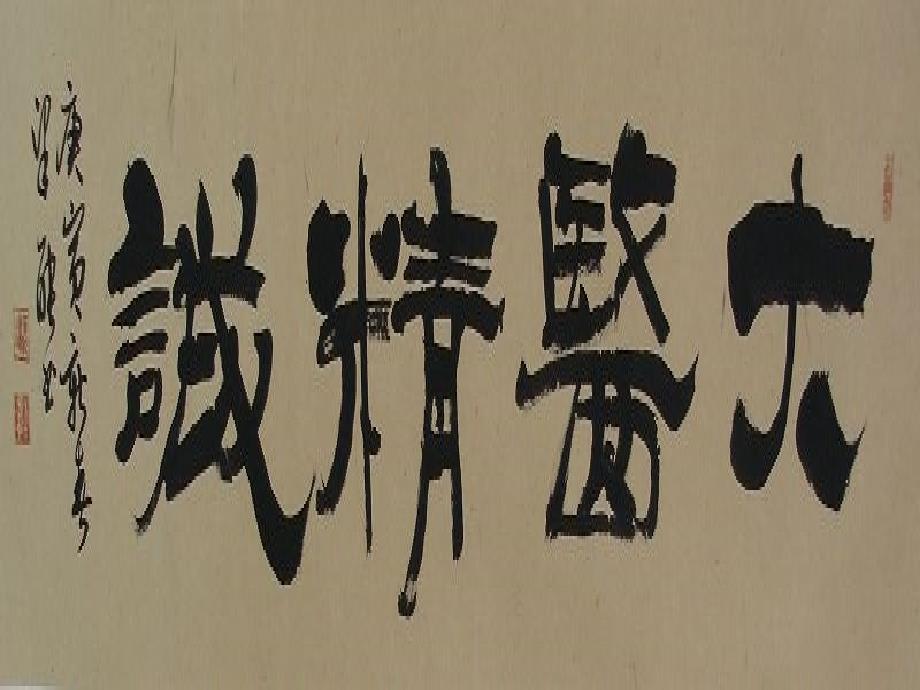 大醫精誠
庚寅新春